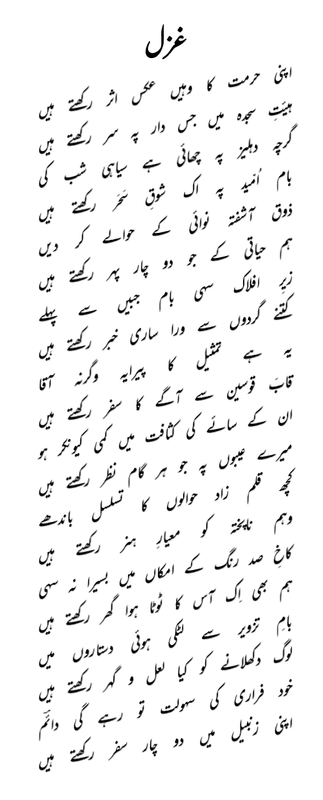 غزل
اپنی حرمت کا وہیں عکس اثر رکھتے ہیں
ہیئتِ سجدہ میں جس دار پہ سر رکھتے ہیں
گرچہ دہلیز پہ چھائی ہے سیاہی شب کی
بام اُمید پہ اک شوقِ سَحَر رکھتے ہیں
ذوق آشفتہ نوائی کے حوالے کر دیں
ہم حیاتی کے جو دو چار پہر رکھتے ہیں
زیرِ افلاک سہی بام جبیں سے پہلے
کتنے گردوں سے ورا ساری خبر رکھتے ہیں
یہ ہے تمثیل کا پیرایہ وگرنہ آقا
قابَ قوسین سے آگے کا سفر رکھتے ہیں
ان کے سائے کی کثافت میں کمی کیونکر ہو
میرے عیبوں پہ جو ہر گام نظر رکھتے ہیں
کچھ قلم زاد حوالوں کا تسلسل باندھے
وہم ناپختہ کو معیارِ ہنر رکھتے ہیں
کاخِ صد رنگ کے امکاں میں بسیرا نہ سہی
ہم بھی اِک آس کا ٹوٹا ہوا گھر رکھتے ہیں
بامِ تزویر سے لٹکی ہوئی دستاروں میں
لوگ دکھلانے کو کیا لعل و گہر رکھتے ہیں
خود فراری کی سہولت تو رہے گی دائمؔ
اپنی زنبیل میں دو چار سفر رکھتے ہیں